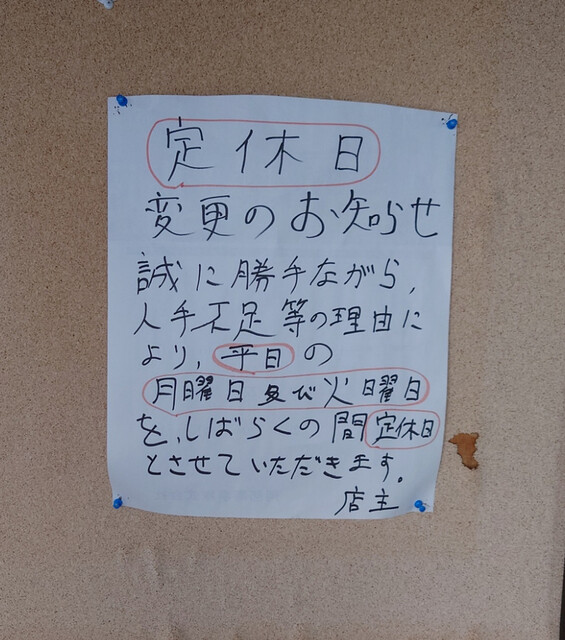 定休日
変更のお知らせ
誠に勝手ながら,
人手不足等の理由に
より,平日の
月曜日及び火曜日
を、しばらくの間定休日
とさせていただきます。
店主